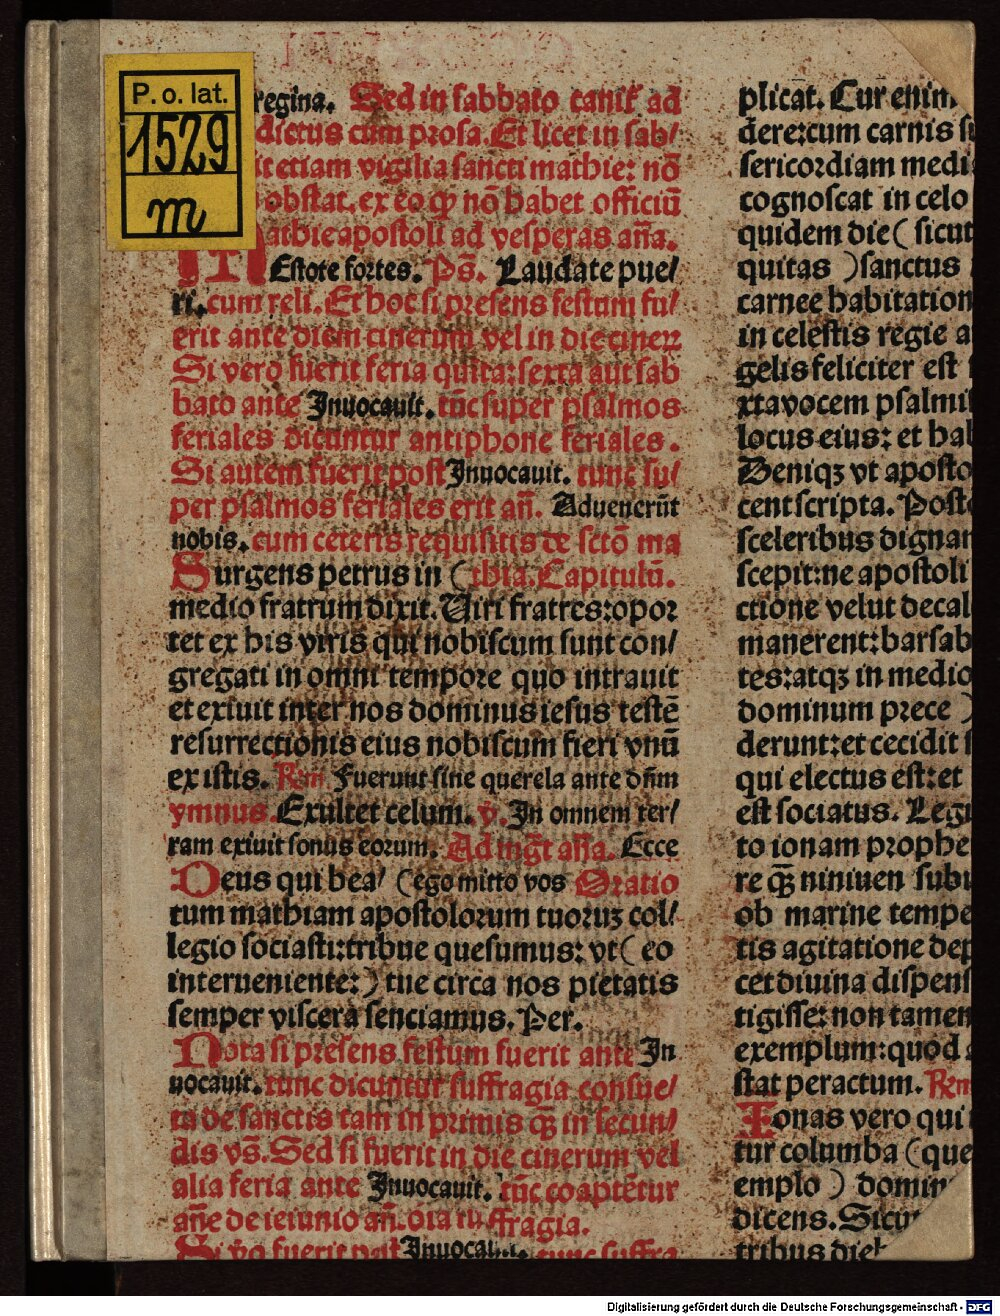 P. o. lat.
1529
m
regina. Sed in sabbato canit̃ ad
dictus cum prosa. Et licet in sab/
it etiam vigilia sancti mathie: nō
obstat. ex eo ꝙ nō habet officiū
athie apostoli ad vesperas aña.
Estote fortes. Ps̄. Laudate pue/
ri. cum reli. Et hoc si presens festum fu/
erit ante diem cinerum vel in die cineꝝ
Si vero fuerit feria quita: sexta aut sab
bato ante Inuocauit. tūc super psalmos
feriales dicuntur antiphone feriales.
Si autem fuerit post Inuocauit. tunc su/
per psalmos feriales erit añ. Aduenerūt
nobis. cum ceteris requisitis de sctō ma
Surgens petrus in ( thia. Capitulū.
medio fratrum dixit. Uiri fratres: opor
tet ex his viris qui nobiscum sunt con/
gregati in omni tempore quo intrauit
et exiuit inter nos dominus iesus testē
resurrectionis eius nobiscum fieri vnū
ex istis. Rm̃ Fuerunt sine querela ante dn̄m
ymnus. Exultet celum. v̄. In omnem ter/
ram exiuit sonus eorum. Ad mgt̄ aña. Ecce
Deus qui bea/ ( ego mitto vos Oratio
tum mathiam apostolorum tuoruꝫ col/
legio sociasti: tribue quesumus: vt ( eo
interueniente: ) tue circa nos pietatis
semper viscera senciamus. Per.
Nota si presens festum fuerit ante In
uocauit. tunc dicuntur suffragia consue/
ta de sanctis tam in primis q̄ꝫ in secun/
dis vs̄. Sed si fuerit in die cinerum vel
alia feria ante Inuocauit. tūc coaptētur
añe de ieiunio añ. oīa suffragia.
Si v̄o fuerit post Inuocauit. tunc suffra
plicat. Cur enim
dere: cum carnis
sericordiam medi
cognoscat in celo
quidem die ( sicut
quitas ) sanctus
carnee habitation
in celestis regie a
gelis feliciter est
xta vocem psalmi
locus eius: et hab
Deniqꝫ vt aposto
cent scripta. Post
sceleribus dignan
scepit: ne apostoli
ctione velut decal
manerent: barsab
tes: atqꝫ in medio
dominum prece )
derunt: et cecidit
qui electus est: et
est sociatus. Leg
to ionam prophe
re q̄ꝫ niniuen subu
ob marine tempe
tis agitatione dep
cet diuina dispens
tigisse: non tamen
exemplum: quod
stat peractum. Rm̃
Ionas vero qui
tur columba ( que
emplo ) domin
dicens. Sicut
tribus dieb
Digitalisierung gefördert durch die Deutsche Forschungsgemeinschaft - DFG